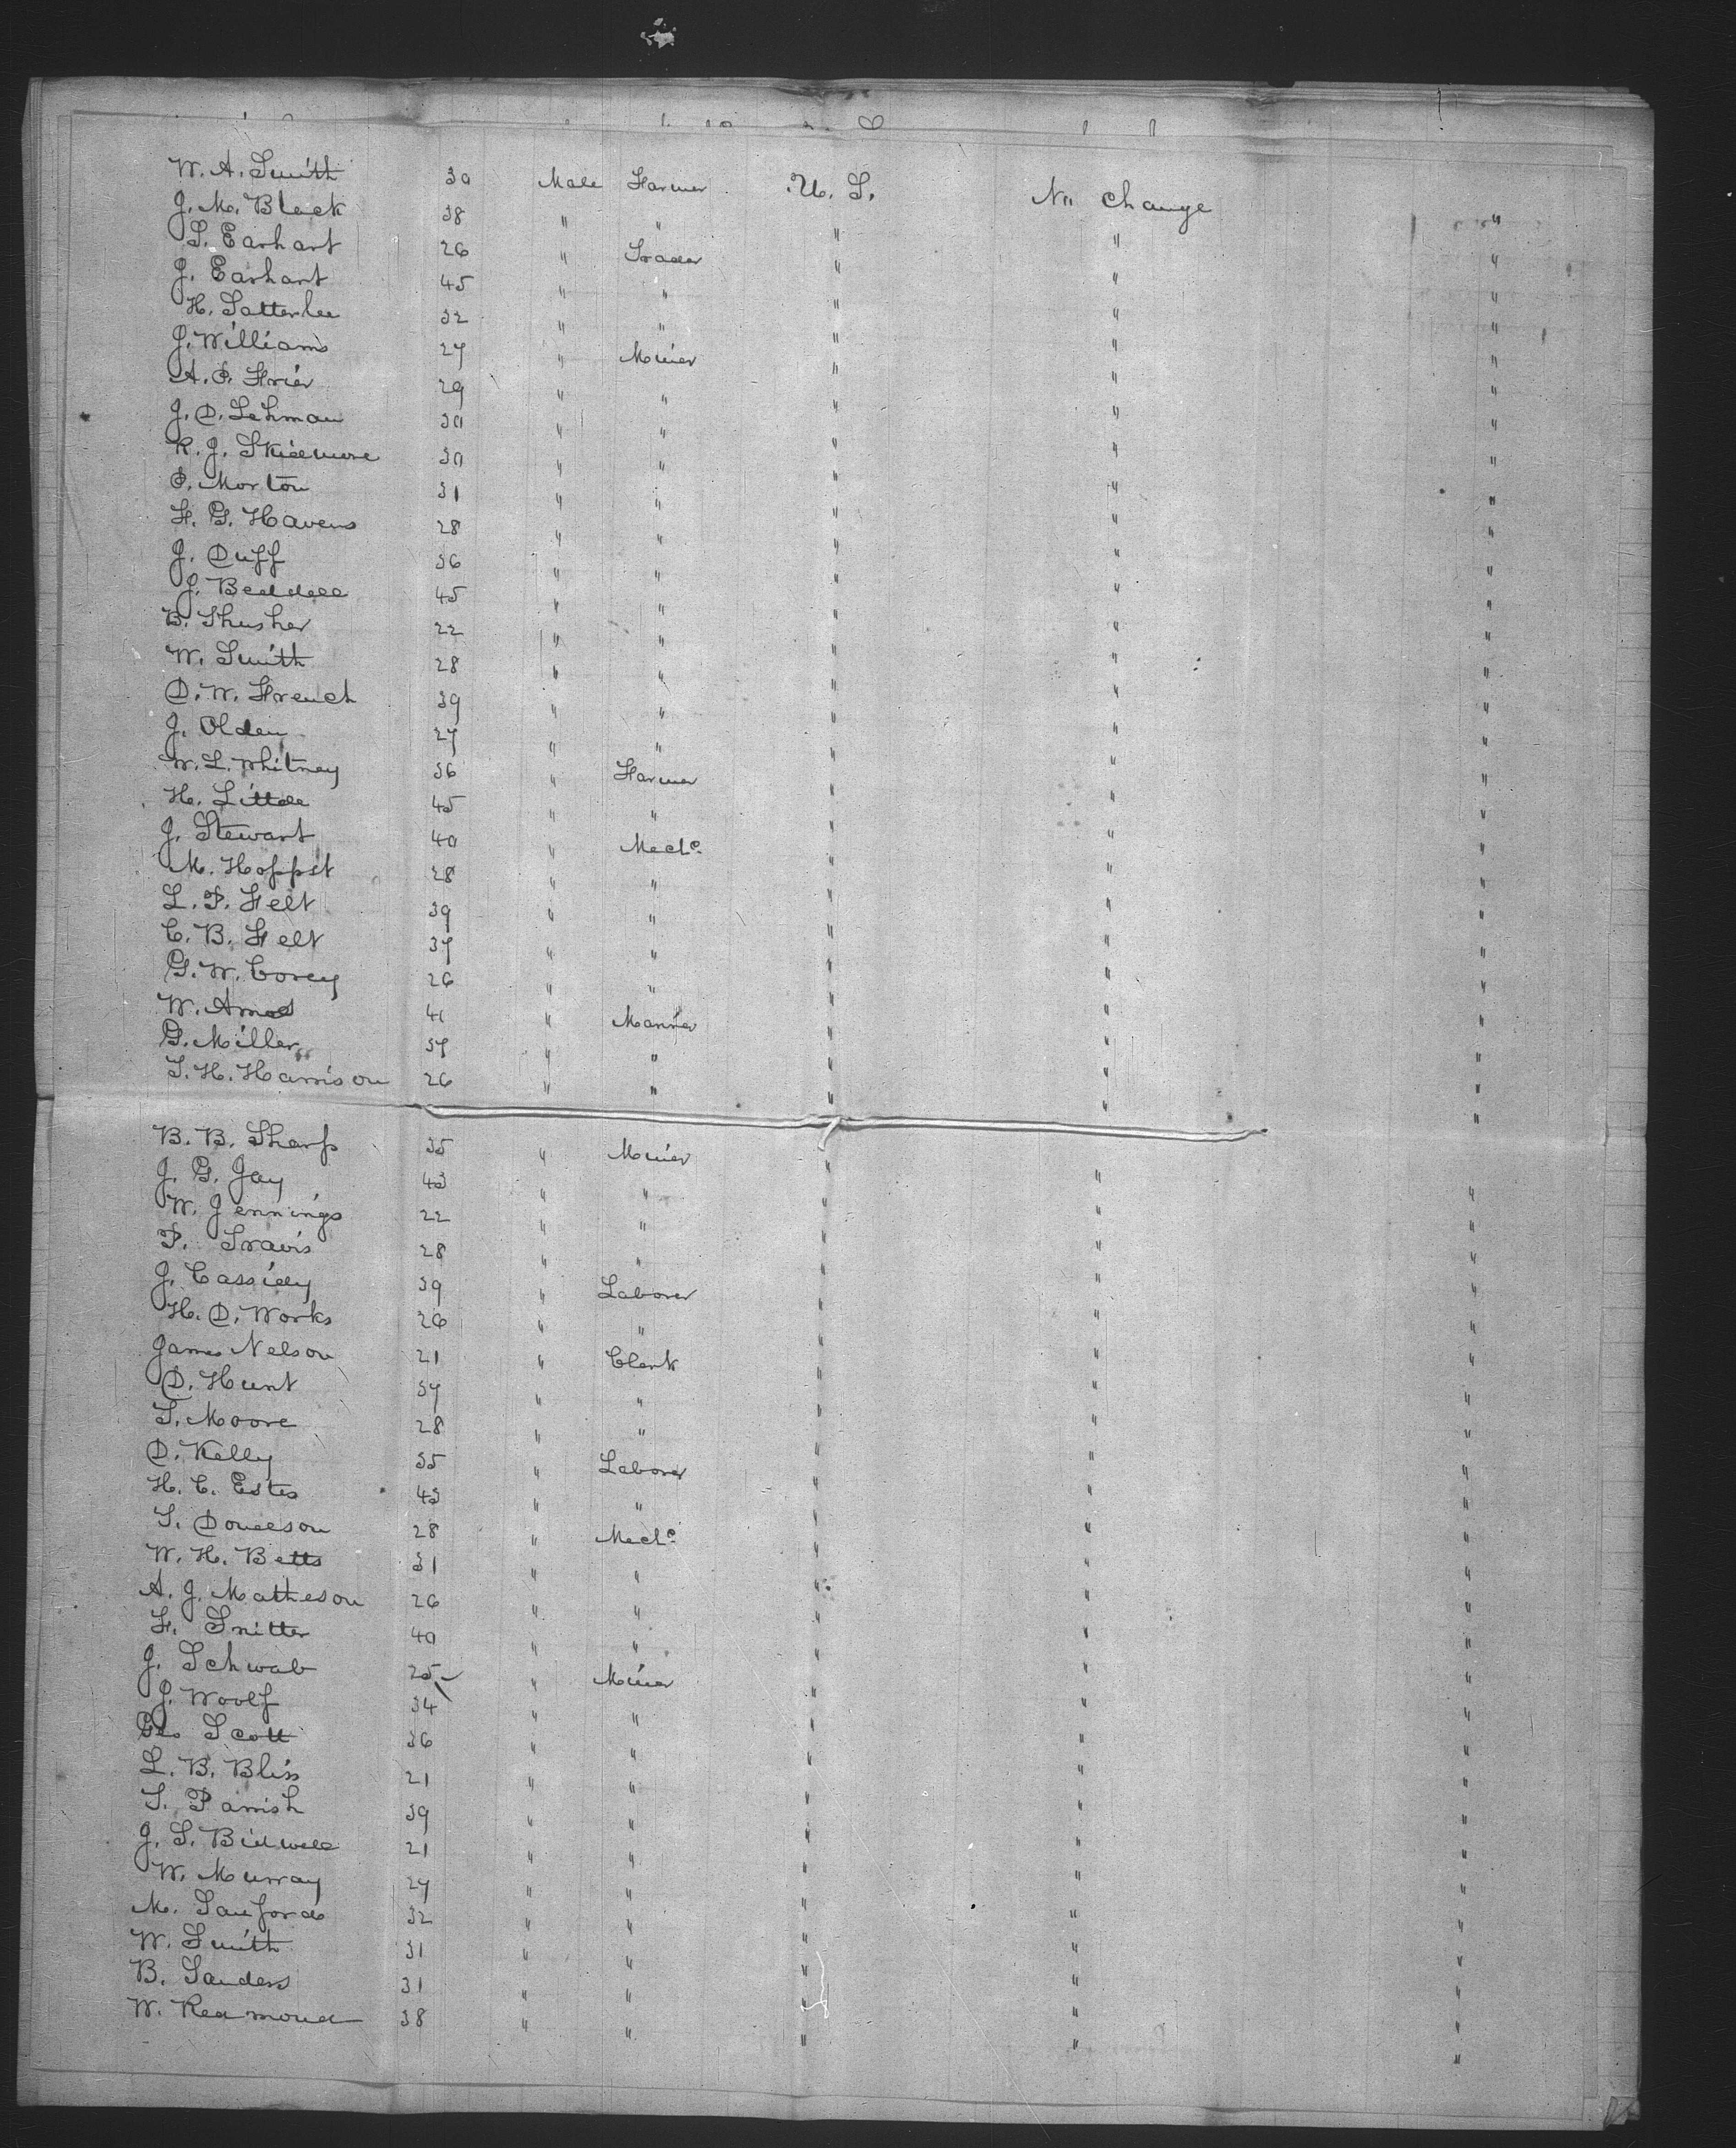 W. A. Smith 30 Male Farmer U. S. No change "
J. M. Black 38 " " " " "
S. Earhart 26 " Trader " " "
J. Earhart 45 " " " " "
H. Satterlee 32 " " " " "
J. Williams 27 " Miner " " "
A. P. Frier 29 " " " " "
J. D. Lehman 30 " " " " "
R. J. Skidmore 30 " " " " "
P. Morton 31 " " " " "
F. G. Havens 28 " " " " "
J. Duff 36 " " " " "
J. Beddell 45 " " " " "
B. Thusher 22 " " " " "
W. Smith 28 " " " " "
D. W. French 39 " " " " "
J. Olden 27 " " " " "
W. L. Whitney 36 " Farmer " " "
H. Little 45 " " " " "
J. Stewart 40 " Mechc " " "
M. Hoppst 28 " " " " "
L. P. Felt 39 " " " " "
C. B. Felt 37 " " " " "
G. W. Corey 26 " " " " "
W. Amos 41 " Marrier " " "
G. Miller 37 " " " " "
T. H. Harrison 26 " " " " "
B. B. Sharp 35 " Miner " " "
J. G. Jay 43 " " " " "
W. Jennings 22 " " " " "
P. Travis 28 " " " " "
J. Cassidy 39 " Laborer " " "
H. D. Works 26 " " " " "
James Nelson 21 " Clerk " " "
D. Hunt 37 " " " " "
T. Moore 28 " " " " "
D. Kelly 35 " Laborer " " "
H. C. Estes 43 " " " " "
T. Donelson 28 " Mechc " " "
W. H. Betts 31 " " " " "
A. J. Matheson 26 " " " " "
F. Snitter 40 " " " " "
J. Schwab 25 " Miner " " "
J. Woolf 34 " " " " "
Geo Scott 36 " " " " "
L. B. Bliss 21 " " " " "
T. Parrish 39 " " " " "
J. S. Bidwell 21 " " " " "
W. Murray 27 " " " " "
M. Sanford 32 " " " " "
W. Smith 31 " " " " "
B. Sanders 31 " " " " "
W. Redmond 38 " " " " "